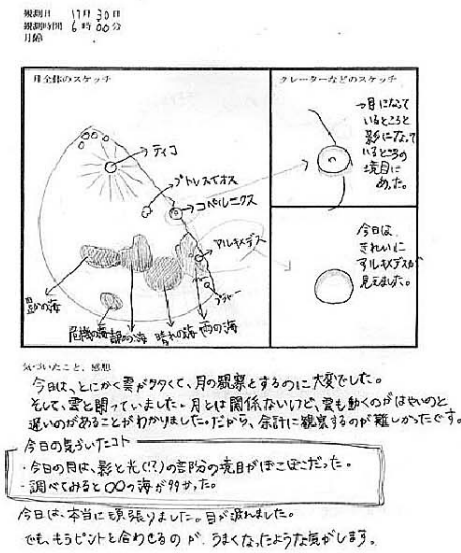 観測日 11月30日
観測時間 6時00分
月齢
月全体のスケッチ
ティコ
プトレマイオス
コペルニクス
アルキメデス
プラトー
豊かの海
危機の海
静の海
晴れの海
雨の海
クレーターなどのスケッチ
→月になって
いるところと
影になって
いるところの
境目に
あった。
今日は、
きれいに
アルキメデスが
見えました。
気づいたこと、感想
今日は、とにかく雲が多くて、月の観察をするのに大変でした。
そして、雲と闘っていました。月とは関係ないけど、雲も動くのがはやいのと
遅いのがあることがわかりました。だから、余計に観察するのが難しかったです。
今日の気づいたコト
・今日の月は、影と光(!?)の部分の境目がぼこぼこだった。
・調べてみると○○の海が多かった。
今日は、本当に頑張りました。目が疲れました。
でも、もうピントを合わせるのが、うまくなったような気がします。